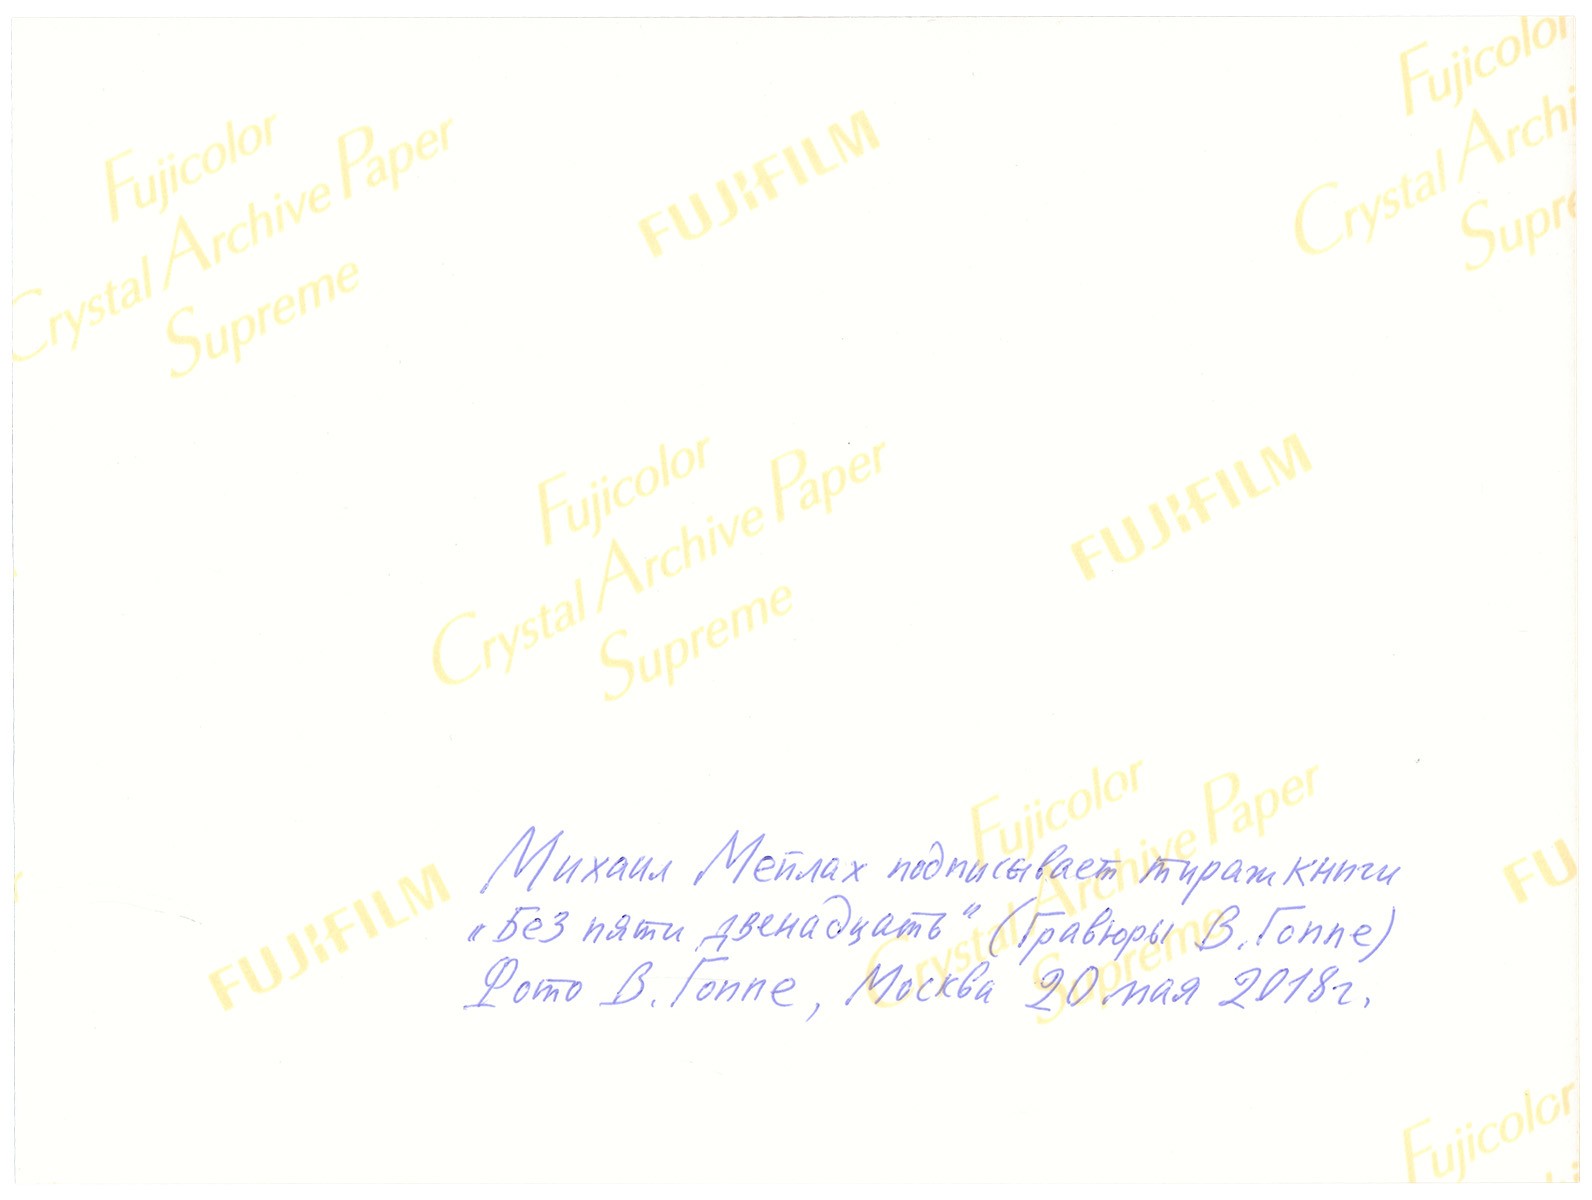 Fujicolor
Crystal Archive Paper
Supreme
FUJIFILM
Fujicolor
Crystal Archi
Supre
Fujicolor
Crystal Archive Paper
Supreme
FUJIFILM
Fujicolor
Crystal Archive Paper
Supreme
FUJIFILM
FU
Михаил Мейлах подписывает тираж книги
„Без пяти двенадцать“ (Гравюры В. Гоппе)
Фото В. Гоппе, Москва 20 мая 2018г.
Fujicolor